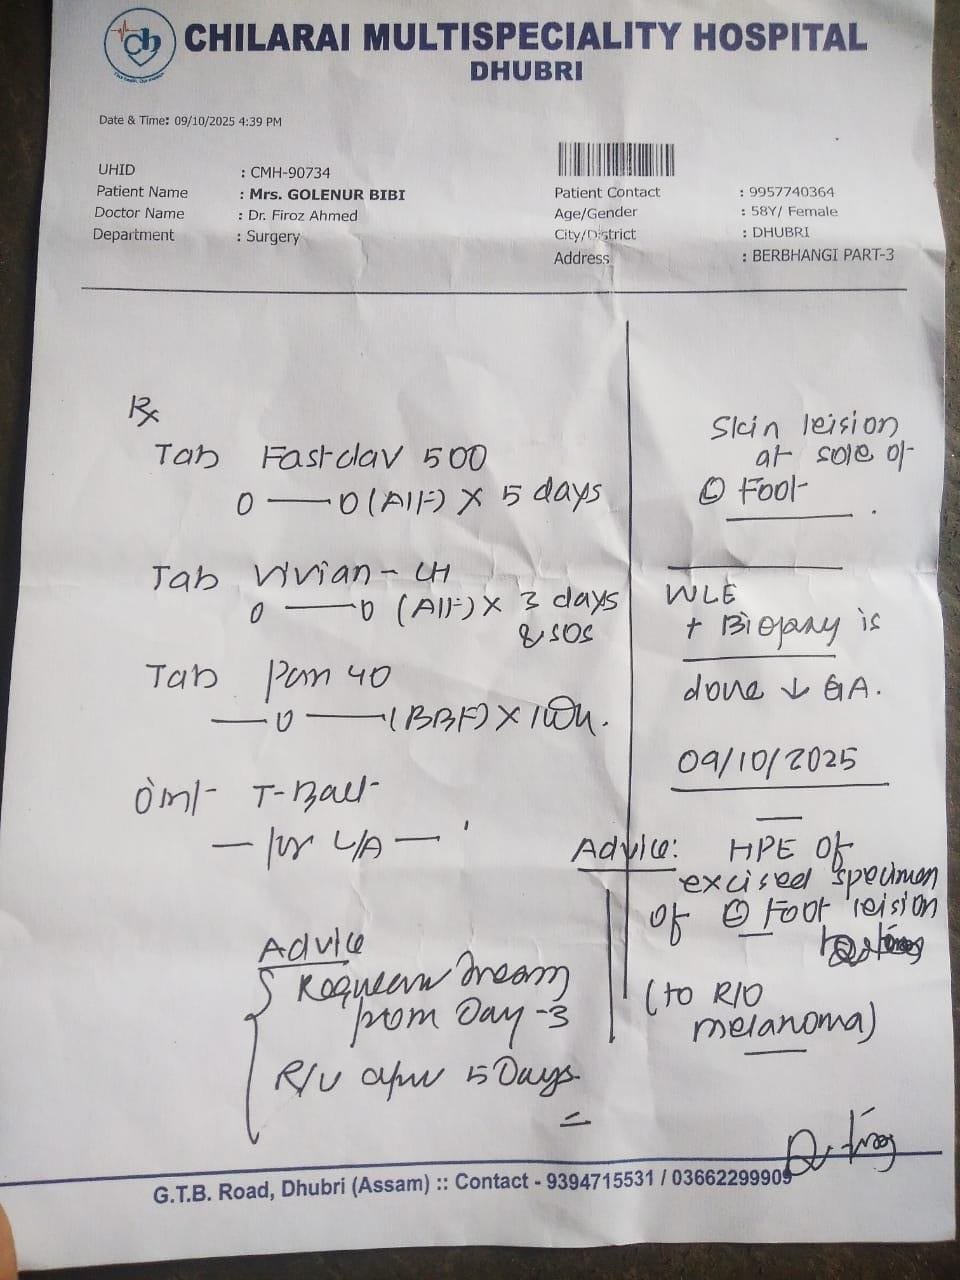 ch
CHILARAI MULTISPECIALITY HOSPITAL
DHUBRI
Date & Time: 09/10/2025 4:39 PM
UHID : CMH-90734
Patient Name : Mrs. GOLENUR BIBI
Doctor Name : Dr. Firoz Ahmed
Department : Surgery
Patient Contact : 9957740364
Age/Gender : 58Y/ Female
City/District : DHUBRI
Address : BERBHANGI PART-3
Rx
Tab Fastclav 500
0 — 0 (A/F) X 5 days
Tab Vivian - CH
0 — 0 (A/F) X 3 days
& SOS
Tab Pan 40
— 0 — (BBF) X 1
Oint T-Bact
— for L/A —
Advice
Regular
from Day - 3
R/V after 5 Days
Skin leision
at sole of
L Foot
WLE
+ Biopsy is
done ↓ GA.
09/10/2025
Advice: HPE of
excised specimen
of L Foot leision
(to R/O
melanoma)
G.T.B. Road, Dhubri (Assam) :: Contact - 9394715531 / 03662299909